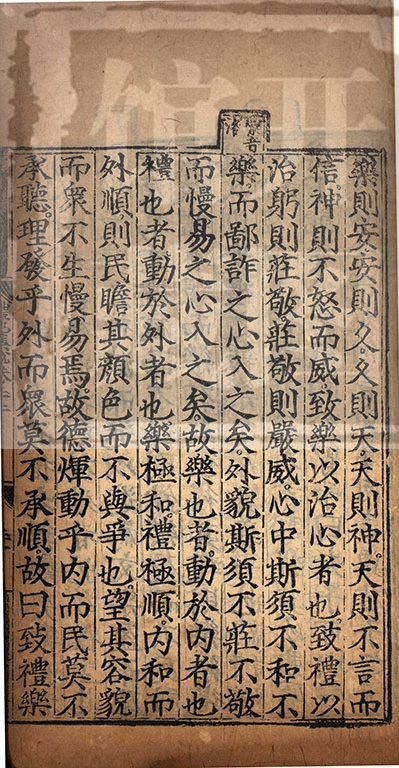 樂則安安則久。久則天。天則神。天則不言而
信。神則不怒而威。致樂以治心者也。致禮以
治躬則莊敬。莊敬則嚴威。心中斯須不和不
樂。而鄙詐之心入之矣。外貌斯須不莊不敬
而慢易之心入之矣。故樂也者。動於内者也
禮也者動於外者也。樂極和。禮極順。内和而
外順則民瞻其顔色而不與爭也。望其容貌
而衆不生慢易焉。故德煇動乎内而民莫不
承聽。理發乎外而衆莫不承順。故曰致禮樂